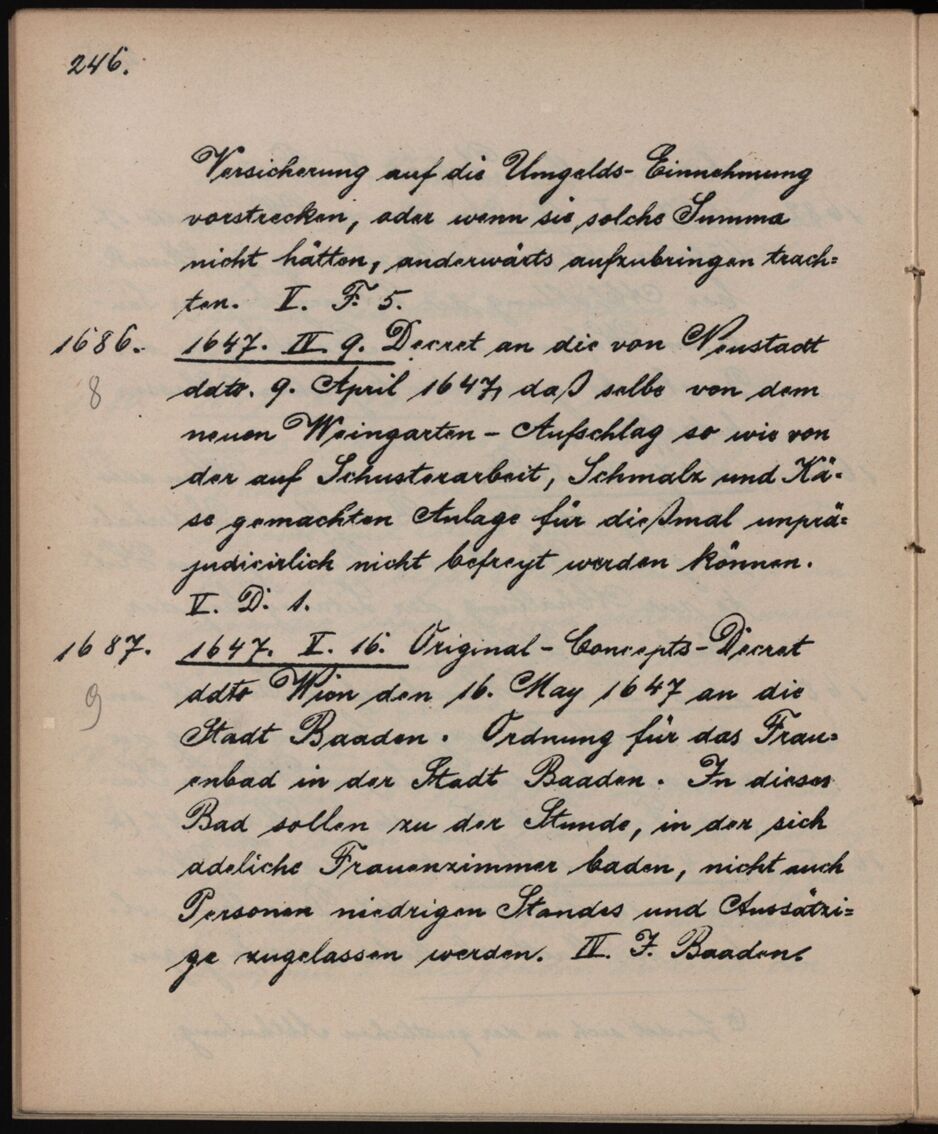 246.
Versicherung auf die Umgelds-Einnehmung
vorstrecken, oder wenn sie solche Summa
nicht hätten, anderwärts aufzubringen trach=
ten. V. F. 5.
1686. 1647. IV. 9. Decret an die von Neustadt
8 ddto. 9. April 1647, daß selbe von dem
neuen Weingarten-Aufschlag so wie von
der auf Schusterarbeit, Schmalz und Kä=
se gemachten Anlage für dießmal unprä=
judicirlich nicht befreyt werden können.
V. D. 1.
1687. 1647. V. 16. Original-Concepts-Decret
9 ddto Wien den 16. May 1647 an die
Stadt Baaden. Ordnung für das Frau=
enbad in der Stadt Baaden. In dieses
Bad sollen zu der Stunde, in der sich
adeliche Frauenzimmer baden, nicht auch
Personen niedrigen Standes und Aussätzi=
ge zugelassen werden. IV. J. Baaden.